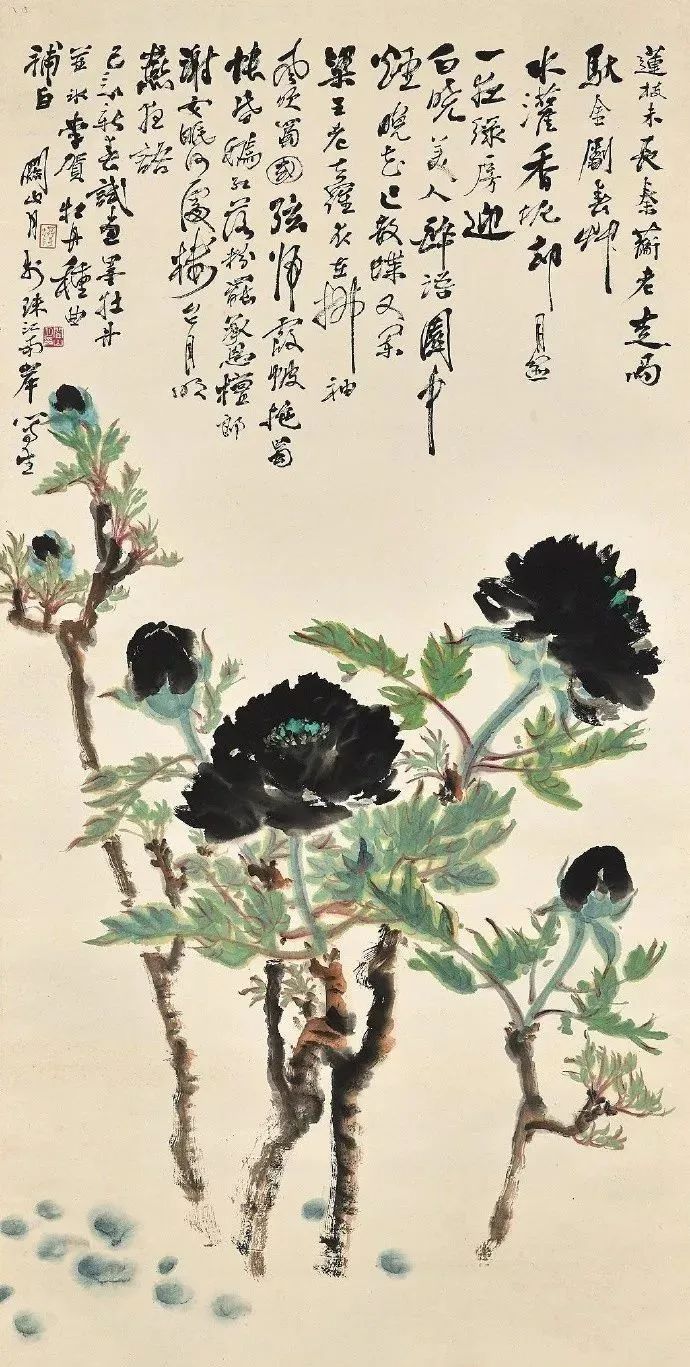 蓮枝未長秦蘅老走馬
馱金劚春艸
水灌香坭却月盆
一夜綠房迎
白曉美人醉語園中
煙晚花已散蝶又闌
梁王老去羅衣在拂袖
風吹蜀國弦歸霞帔拖蜀
帳昏嫣紅落粉罷承恩檀郎
謝女眠何處樓台月明
燕夜語
己未新春試畫墨牡丹
並錄李賀牡丹種曲
補白 關山月於珠江南岸寫生